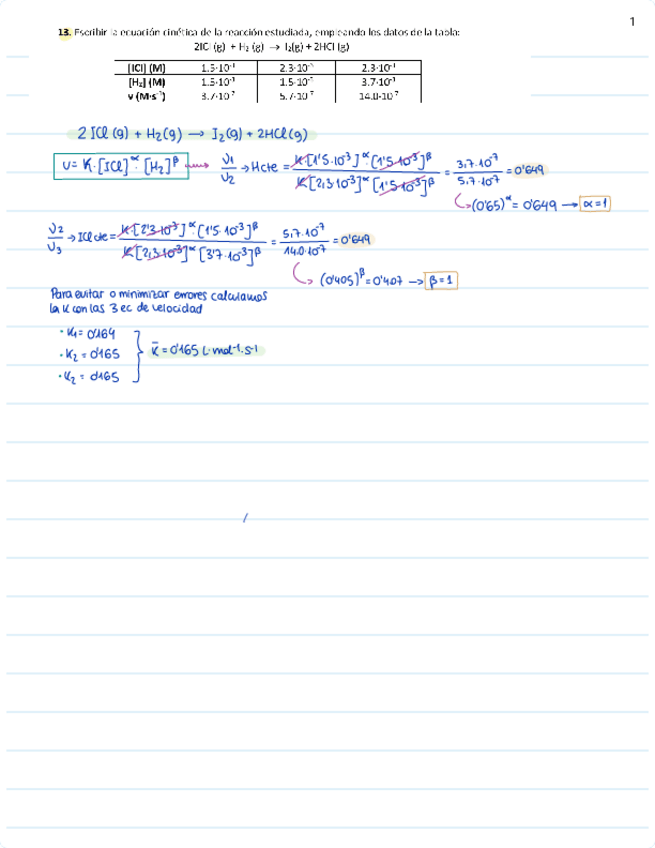 1
13. Escribir la ecuación cinética de la reacción estudiada, empleando los datos de la tabla:
2ICl (g) + H₂ (g) → I₂(g) + 2HCl (g)
[ICl] (M) 1.5·10⁻³ 2.3·10⁻³ 2.3·10⁻³
[H₂] (M) 1.5·10⁻³ 1.5·10⁻³ 3.7·10⁻³
v (M·s⁻¹) 3.7·10⁻⁷ 5.7·10⁻⁷ 14.0·10⁻⁷
2 ICl (g) + H₂(g) → I₂(g) + 2HCl(g)
v = K·[ICl]^α·[H₂]^β → v₁/v₂ → Hcte = K[1'5·10³]^α·[1'5·10³]^β / K[2,3·10³]^α[1'5·10³]^β = 3,7·10⁷ / 5,7·10⁷ = 0'649
(0'65)^α = 0'649 → α = 1
v₂/v₃ → ICl cte = K[2'3·10³]^α·[1'5·10³]^β / K[2,3·10³]^α[3'7·10³]^β = 5,7·10⁷ / 14.0·10⁷ = 0'649
(0'405)^β = 0'407 → β = 1
Para evitar o minimizar errores calculamos
la K con las 3 ec de velocidad
· K₁ = 0'164
· K₂ = 0'165
· K₂ = 0'165
K̄ = 0'165 L·mol⁻¹·s⁻¹